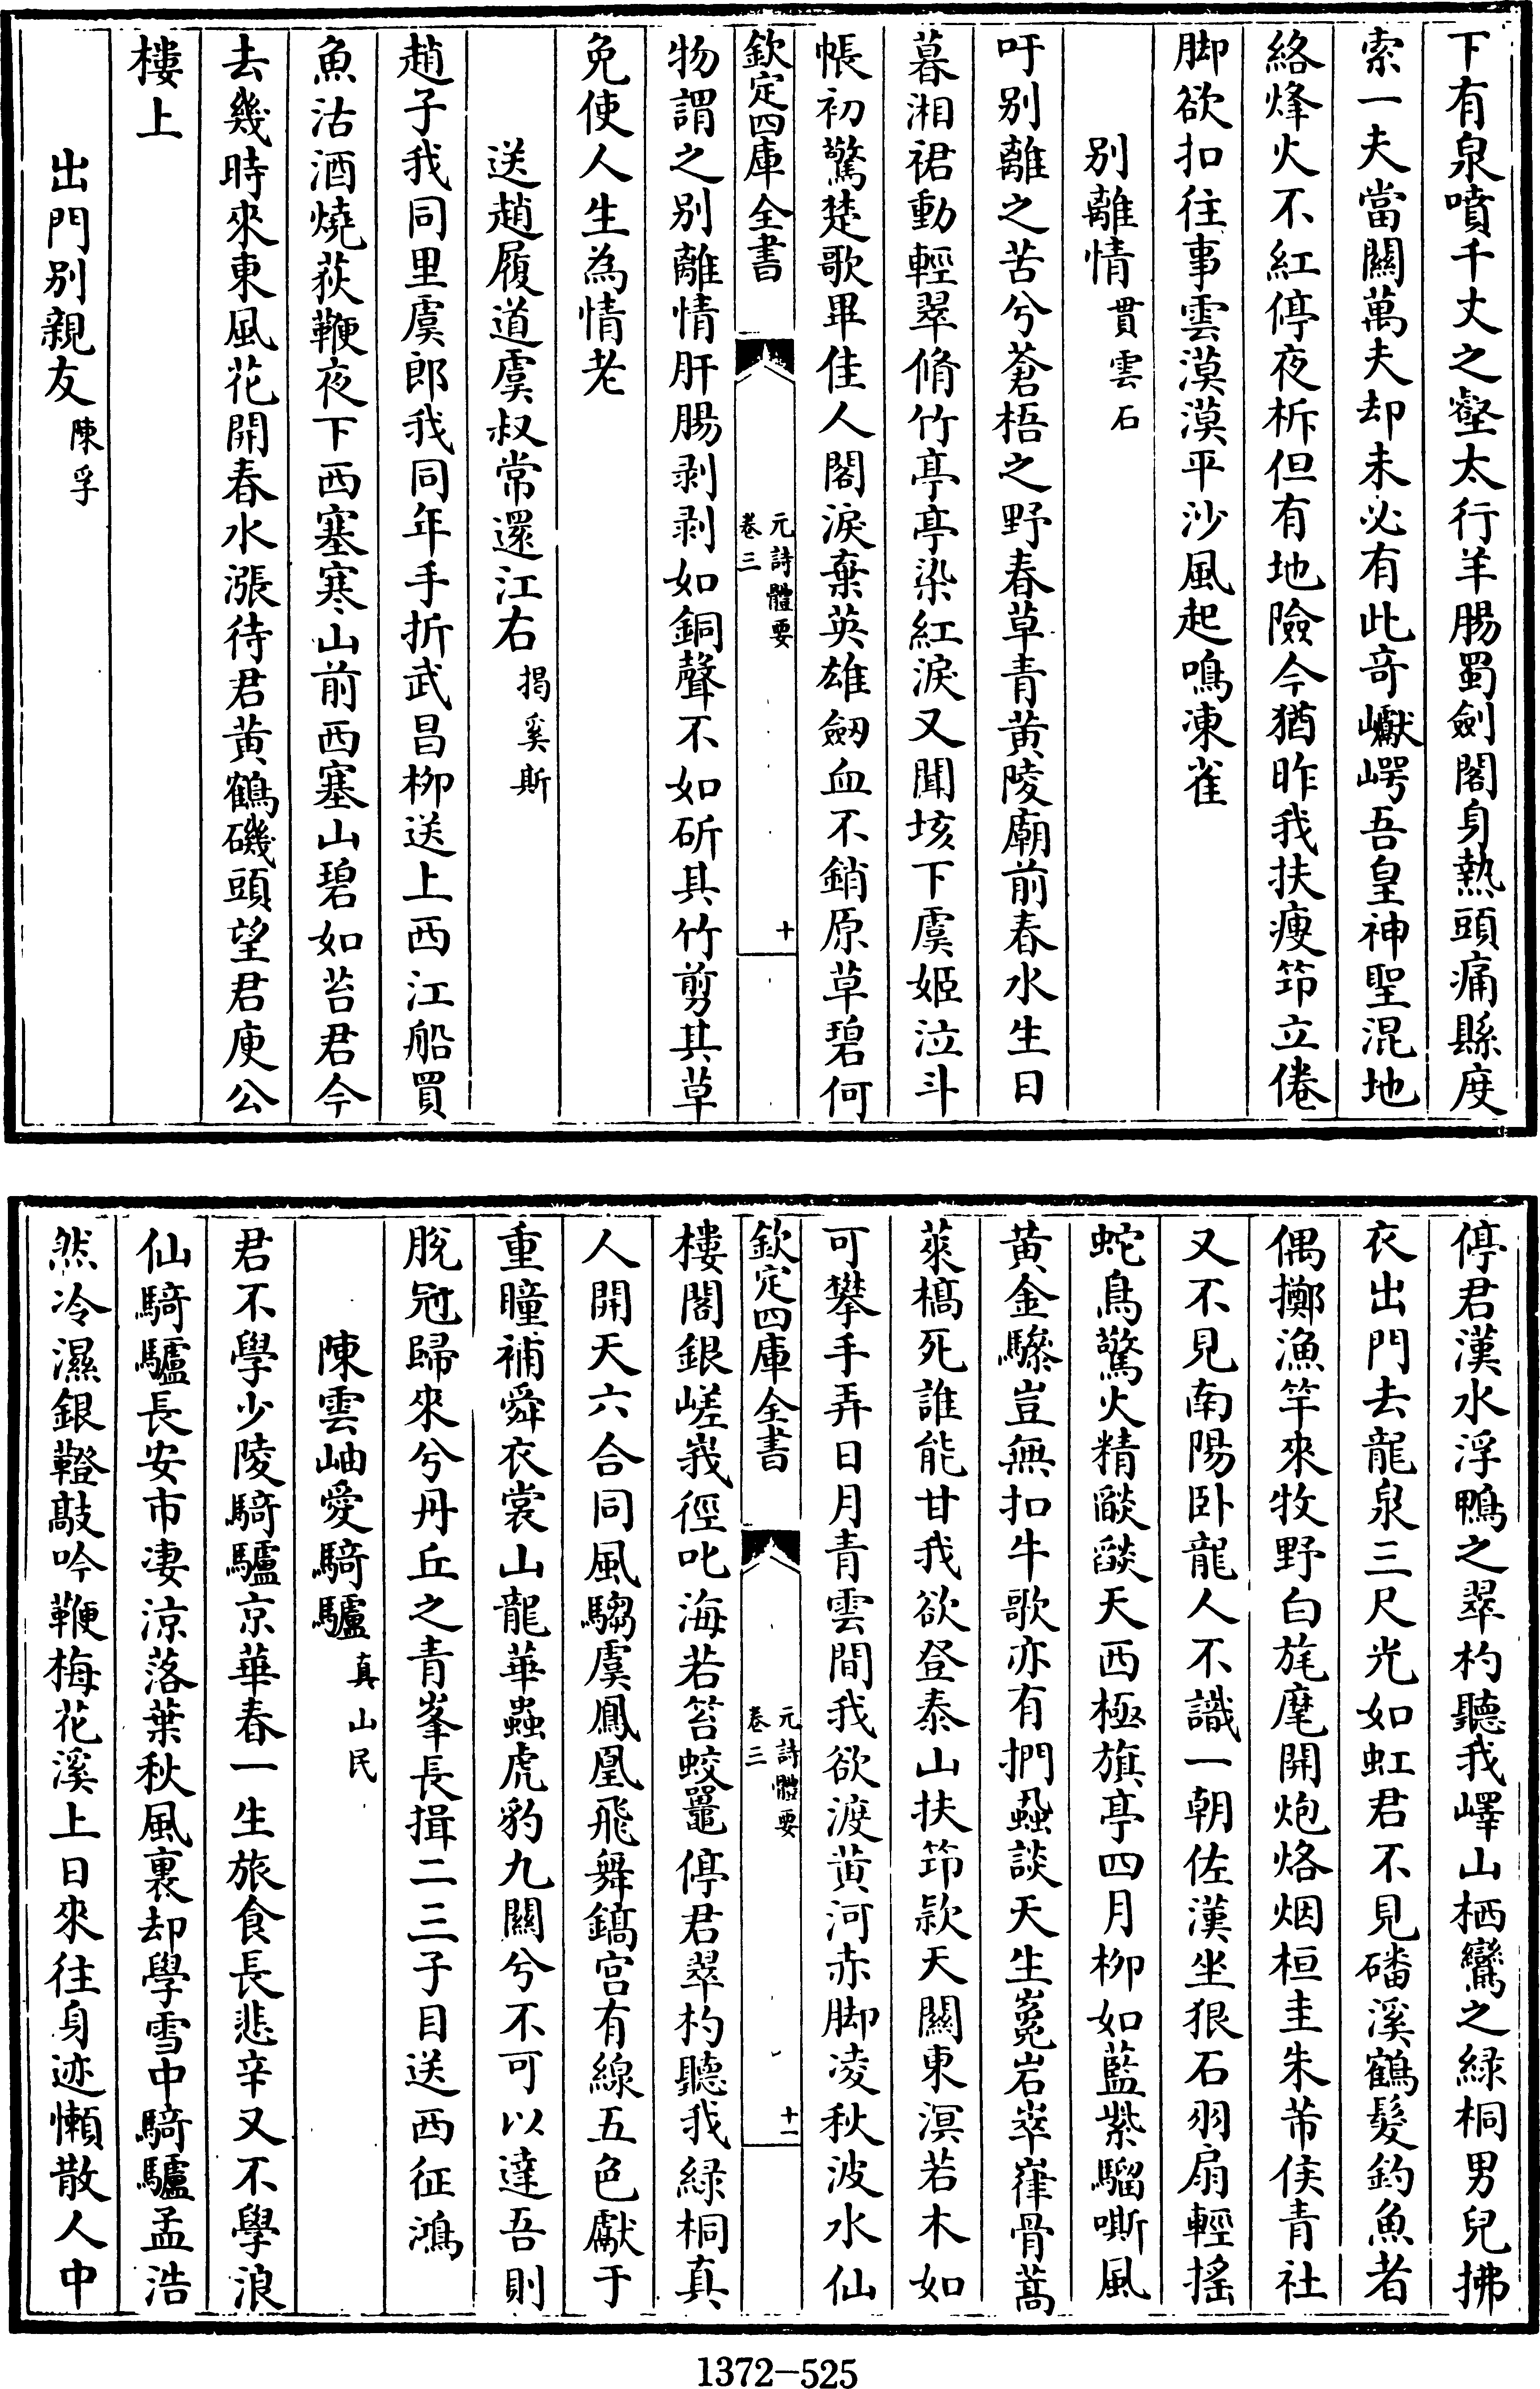 下有泉噴千丈之壑太行羊腸蜀劍閣身熱頭痛縣度
索一夫當關萬夫却未必有此奇巘崿吾皇神聖混地
絡烽火不紅停夜柝但有地險今猶昨我扶瘦筇立倦
脚欲扣往事雲漠漠平沙風起鳴凍雀
別離情貫雲石
吁別離之苦兮蒼梧之野春草青黃陵廟前春水生日
暮湘裙動輕翠脩竹亭亭染紅淚又聞垓下虞姬泣斗
帳初驚楚歌畢佳人閣淚棄英雄劒血不銷原草碧何
欽定四庫全書
元詩體要
卷三
十
物謂之別離情肝腸剥剥如銅聲不如斫其竹剪其草
免使人生為情老
送趙履道虞叔常還江右揭奚斯
趙子我同里虞郎我同年手折武昌柳送上西江船買
魚沽酒燒荻鞭夜下西塞寒山前西塞山碧如苔君今
去幾時來東風花開春水漲待君黃鶴磯頭望君庾公
樓上
出門別親友陳孚
停君漢水浮鴨之翠杓聽我嶧山栖鸞之緑桐男兒拂
衣出門去龍泉三尺光如虹君不見磻溪鶴髮釣魚者
偶擲漁竿來牧野白旄麾開炮烙烟桓圭朱芾侯青社
又不見南陽卧龍人不識一朝佐漢坐狠石羽扇輕搖
蛇鳥驚火精燄燄天西極旗亭四月柳如藍紫騮嘶風
黃金驂豈無扣牛歌亦有捫蝨談天生嵬岩崒嵂骨蒿
萊槁死誰能甘我欲登泰山扶筇欵天關東溟若木如
可攀手弄日月青雲間我欲渡黃河赤脚凌秋波水仙
欽定四庫全書
元詩體要
卷三
十一
樓閣銀嵯峩徑叱海若笞蛟鼉停君翠杓聽我緑桐真
人開天六合同風騶虞鳳凰飛舞鎬宫有線五色獻于
重瞳補舜衣裳山龍華蟲虎豹九關兮不可以達吾則
脫冠歸來兮丹丘之青峯長揖二三子目送西征鴻
陳雲岫愛騎驢真山民
君不學少陵騎驢京華春一生旅食長悲辛又不學浪
仙騎驢長安市凄涼落葉秋風裏却學雪中騎驢孟浩
然冷濕銀鞯敲吟鞭梅花溪上日來往身迹懶散人中
1372-525